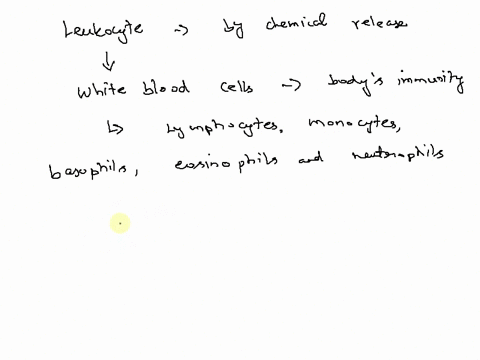 Leukocyte → by chemical release
↓
White blood cells → body's immunity
↳ Lymphocytes, monocytes,
basophils, eosinophils and neutrophils